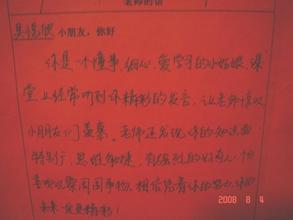 老师的话
小朋友，你好
你是一个懂事、细心、爱学习的小姑娘，课
堂上经常听到你精彩的发言，让老师
小朋友们羡慕。老师还发现你的知识面
特别广，思维敏捷，
观察周围事物，相信凭着你的努力，你的
未来 更精彩！
2008 8 4